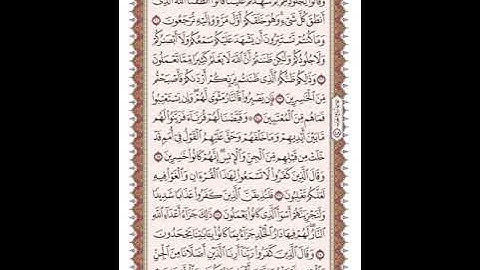 وَقَالُوا لِجُلُودِهِمْ لِمَ شَهِدتُّمْ عَلَيْنَا قَالُوا أَنطَقَنَا اللَّهُ الَّذِي
أَنطَقَ كُلَّ شَيْءٍ وَهُوَ خَلَقَكُمْ أَوَّلَ مَرَّةٍ وَإِلَيْهِ تُرْجَعُونَ ٢١
وَمَا كُنتُمْ تَسْتَتِرُونَ أَن يَشْهَدَ عَلَيْكُمْ سَمْعُكُمْ وَلَا أَبْصَارُكُمْ
وَلَا جُلُودُكُمْ وَلَٰكِن ظَنَنتُمْ أَنَّ اللَّهَ لَا يَعْلَمُ كَثِيرًا مِّمَّا تَعْمَلُونَ ٢٢
وَذَٰلِكُمْ ظَنُّكُمُ الَّذِي ظَنَنتُم بِرَبِّكُمْ أَرْدَاكُمْ فَأَصْبَحْتُم
مِّنَ الْخَاسِرِينَ ٢٣ فَإِن يَصْبِرُوا فَالنَّارُ مَثْوًى لَّهُمْ وَإِن يَسْتَعْتِبُوا
فَمَا هُم مِّنَ الْمُعْتَبِينَ ٢٤ وَقَيَّضْنَا لَهُمْ قُرَنَاءَ فَزَيَّنُوا لَهُم
مَّا بَيْنَ أَيْدِيهِمْ وَمَا خَلْفَهُمْ وَحَقَّ عَلَيْهِمُ الْقَوْلُ فِي أُمَمٍ قَدْ
خَلَتْ مِن قَبْلِهِم مِّنَ الْجِنِّ وَالْإِنسِ إِنَّهُمْ كَانُوا خَاسِرِينَ ٢٥
وَقَالَ الَّذِينَ كَفَرُوا لَا تَسْمَعُوا لِهَٰذَا الْقُرْءَانِ وَالْغَوْا فِيهِ
لَعَلَّكُمْ تَغْلِبُونَ ٢٦ فَلَنُذِيقَنَّ الَّذِينَ كَفَرُوا عَذَابًا شَدِيدًا
وَلَنَجْزِيَنَّهُمْ أَسْوَأَ الَّذِي كَانُوا يَعْمَلُونَ ٢٧ ذَٰلِكَ جَزَاءُ أَعْدَاءِ اللَّهِ
النَّارُ لَهُمْ فِيهَا دَارُ الْخُلْدِ جَزَاءً بِمَا كَانُوا بِآيَاتِنَا يَجْحَدُونَ
٢٨ وَقَالَ الَّذِينَ كَفَرُوا رَبَّنَا أَرِنَا الَّذَيْنِ أَضَلَّانَا مِنَ الْجِنِّ